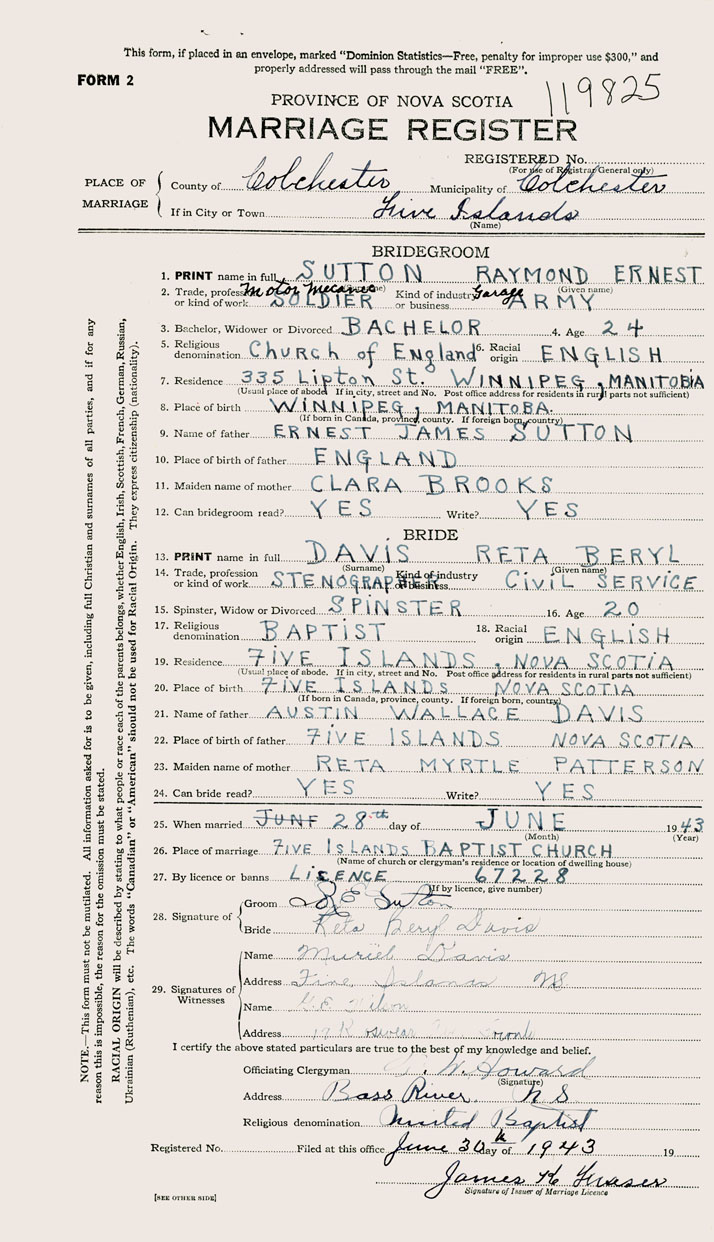 This form, if placed in an envelope, marked "Dominion Statistics—Free, penalty for improper use $300," and
properly addressed will pass through the mail "FREE".
FORM 2
119825
PROVINCE OF NOVA SCOTIA
MARRIAGE REGISTER
REGISTERED No.
(For use of Registrar General only)
PLACE OF MARRIAGE
County of Colchester Municipality of Colchester
If in City or Town Five Islands
(Name)
BRIDEGROOM
1. PRINT name in full SUTTON RAYMOND ERNEST
(Given name)
2. Trade, profession or kind of work Motor Mecanic SOLDIER Kind of industry or business Garage ARMY
3. Bachelor, Widower or Divorced BACHELOR 4. Age 24
5. Religious denomination Church of England 6. Racial origin ENGLISH
7. Residence 335 Lipton St. WINNIPEG, MANITOBIA
(Usual place of abode. If in city, street and No. Post office address for residents in rural parts not sufficient)
8. Place of birth WINNIPEG, MANITOBA.
(If born in Canada, province, county. If foreign born, country)
9. Name of father ERNEST JAMES SUTTON
10. Place of birth of father ENGLAND
11. Maiden name of mother CLARA BROOKS
12. Can bridegroom read? YES Write? YES
BRIDE
13. PRINT name in full DAVIS RETA BERYL
(Surname) (Given name)
14. Trade, profession or kind of work STENOGRAPHER Kind of industry or business CIVIL SERVICE
15. Spinster, Widow or Divorced SPINSTER 16. Age 20
17. Religious denomination BAPTIST 18. Racial origin ENGLISH
19. Residence FIVE ISLANDS, NOVA SCOTIA
(Usual place of abode. If in city, street and No. Post office address for residents in rural parts not sufficient)
20. Place of birth FIVE ISLANDS NOVA SCOTIA
(If born in Canada, province, county. If foreign born, country)
21. Name of father AUSTIN WALLACE DAVIS
22. Place of birth of father FIVE ISLANDS NOVA SCOTIA
23. Maiden name of mother RETA MYRTLE PATTERSON
24. Can bride read? YES Write? YES
25. When married JUNE 28th day of JUNE 1943
(Month) (Year)
26. Place of marriage FIVE ISLANDS BAPTIST CHURCH
(Name of church or clergyman's residence or location of dwelling house)
27. By licence or banns LISENCE 67228
(If by licence, give number)
28. Signature of
Groom R E Sutton
Bride Reta Beryl Davis
29. Signatures of Witnesses
Name Muriel Davis
Address Five Islands NS
Name Wilson
Address Toronto
I certify the above stated particulars are true to the best of my knowledge and belief.
Officiating Clergyman W. Howard
(Signature)
Address Bass River. N S
Religious denomination United Baptist
Registered No. Filed at this office June 30th day of 1943 19
James K Fraser
Signature of Issuer of Marriage Licence
[SEE OTHER SIDE]
NOTE.—This form must not be mutilated. All information asked for is to be given, including full Christian and surnames of all parties, and if for any
reason this is impossible, the reason for the omission must be stated.
RACIAL ORIGIN will be described by stating to what people or race each of the parents belongs, whether English, Irish, Scottish, French, German, Russian,
Ukrainian (Ruthenian), etc. The words "Canadian" or "American" should not be used for Racial Origin. They express citizenship (nationality).